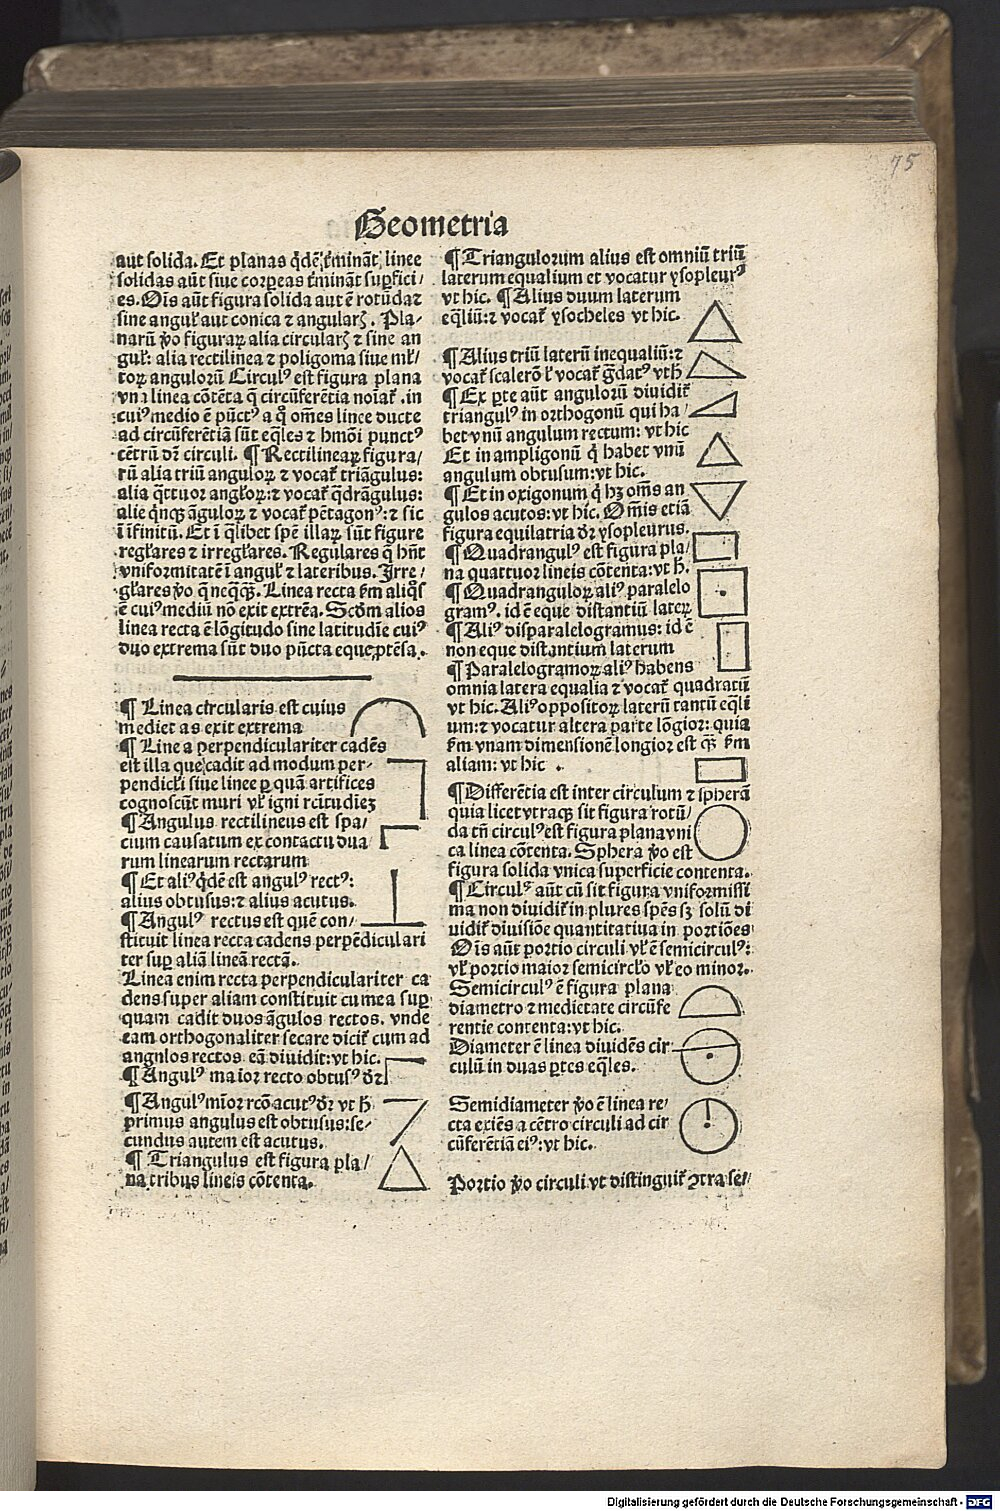 75
Geometria
aut solida. Et planas qdē ēmināt linee
solidas aūt siue corpeas ēmināt suꝑfici/
es. Oīs aūt figura solida aut ē rotūda ⁊
sine anguł aut conica ⁊ angularꝫ. Pla-
narū ꝟo figuraꝝ alia circularꝫ ⁊ sine an
guł: alia rectilinea ⁊ poligoma siue mł/
toꝝ angulorū Circulꝰ est figura plana
vna linea cōtēta q̄ circūferētia noīat̄. in
cuiꝰ medio ē pūctꝰ a q̊ om̄es linee ducte
ad circūferētiā sūt eq̄les ⁊ hmōi punctꝰ
cētrū dr̄ circuli. ¶ Rectilineaꝝ figura/
rū alia triū anguloꝝ ⁊ vocat̄ triāgulus:
alia q̄ttuor angłoꝝ: ⁊ vocat̄ q̄drāgulus:
alie q̄nqꝫ āguloꝝ ⁊ vocat̄ pētagonꝰ: ⁊ sic
ī īfinitū. Et ī q̄libet spē illaꝝ sūt figure
regłares ⁊ irregłares. Regulares q̄ hn̄t
vniformitatē ī anguł ⁊ lateribus. Irre/
głares ꝟo q̄ neq̄qꝫ. Linea recta ẜm aliq̊s
ē cuiꝰ mediū nō exit extrēa. Scd̄m alios
linea recta ē lōgitudo sine latitudīe cuiꝰ
duo extrema sūt duo pūcta eque ꝓtēsa.
¶ Linea circularis est cuius
medietas exit extrema
¶ Linea perpendiculariter cadēs
est illa que cadit ad modum per-
pendicłi siue linee ꝑ quā artifices
cognoscūt muri vł igni rcītudiēꝫ
¶ Angulus rectilineus est spa/
cium causatum ex contactu dua
rum linearum rectarum
¶ Et aliꝰ qdē est angulꝰ rectꝰ:
alius obtusus: ⁊ alius acutus.
¶ Angulꝰ rectus est quē con/
stituit linea recta cadens perpēdiculari
ter suꝑ aliā lineā rectā.
Linea enim recta perpendiculariter ca
dens super aliam constituit cum ea suꝑ
quam cadit duos āgulos rectos. vnde
eam orthogonaliter secare dicit̄ cum ad
angulos rectos eā diuidit: vt hic.
¶ Angulꝰ maior recto obtusꝰ dr̄
¶ Angulꝰ mīor rcō acutꝰ dr̄ vt h̄
primus angulus est obtusus: se/
cundus autem est acutus.
¶ Triangulus est figura pla/
na tribus lineis cōtenta.
¶ Triangulorum alius est omniū triū
laterum equalium et vocatur ysopleurꝰ
vt hic. ¶ Alius duum laterum
eq̄liū: ⁊ vocat̄ ysocheles vt hic.
¶ Alius triū laterū inequaliū: ⁊
vocat̄ scalerō ł vocat̄ g̊datꝰ vt h̄
¶ Ex ꝑte aūt angulorū diuidit̄
triangulꝰ in orthogonū qui ha/
bet vnū angulum rectum: vt hic
Et in ampligonū q̄ habet vnū
angulum obtusum: vt hic.
¶ Et in oxigonum q̄ hꝫ om̄s an
gulos acutos: vt hic. Om̄is etiā
figura equilatria dr̄ ysopleurus.
¶ Quadrangulꝰ est figura pla/
na quattuor lineis cōtenta: vt h̄.
¶ Quadranguloꝝ aliꝰ paralelo
gramꝰ. id ē eque distantiū lateꝝ
¶ Aliꝰ disparalelogramus: id ē
non eque distantium laterum
¶ Paralelogramoꝝ aliꝰ habens
omnia latera equalia ⁊ vocat̄ quadratū
vt hic. Aliꝰ oppositoꝝ laterū tantū eq̄li
um: ⁊ vocatur altera parte lōgior: quia
ẜm vnam dimensionē longior est qꝫ̄ ẜm
aliam: vt hic .
¶ Differētia est inter circulum ⁊ spherā
quia licet vtraqꝫ sit figura rotū/
da tn̄ circulꝰ est figura plana vni
ca linea cōtenta. Sphera ꝟo est
figura solida vnica superficie contenta.
¶ Circulꝰ aūt cū sit figura vniformissi
ma non diuidit̄ in plures spēs sꝫ solū di
uidit̄ diuisiōe quantitatiua in portiōes
Oīs aūt portio circuli vł ē semicirculꝰ:
vł portio maior semicircło vł eo minor.
Semicirculꝰ ē figura plana
diametro ⁊ medietate circūfe
rentie contenta: vt hic.
Diameter ē linea diuidēs cir
culū in duas ꝑtes eq̄les.
Semidiameter ꝟo ē linea re/
cta exiēs a cētro circuli ad cir
cūferētiā eiꝰ: vt hic.
Portio ꝟo circuli vt distinguit̄ ↄtra se/
Digitalisierung gefördert durch die Deutsche Forschungsgemeinschaft - DFG